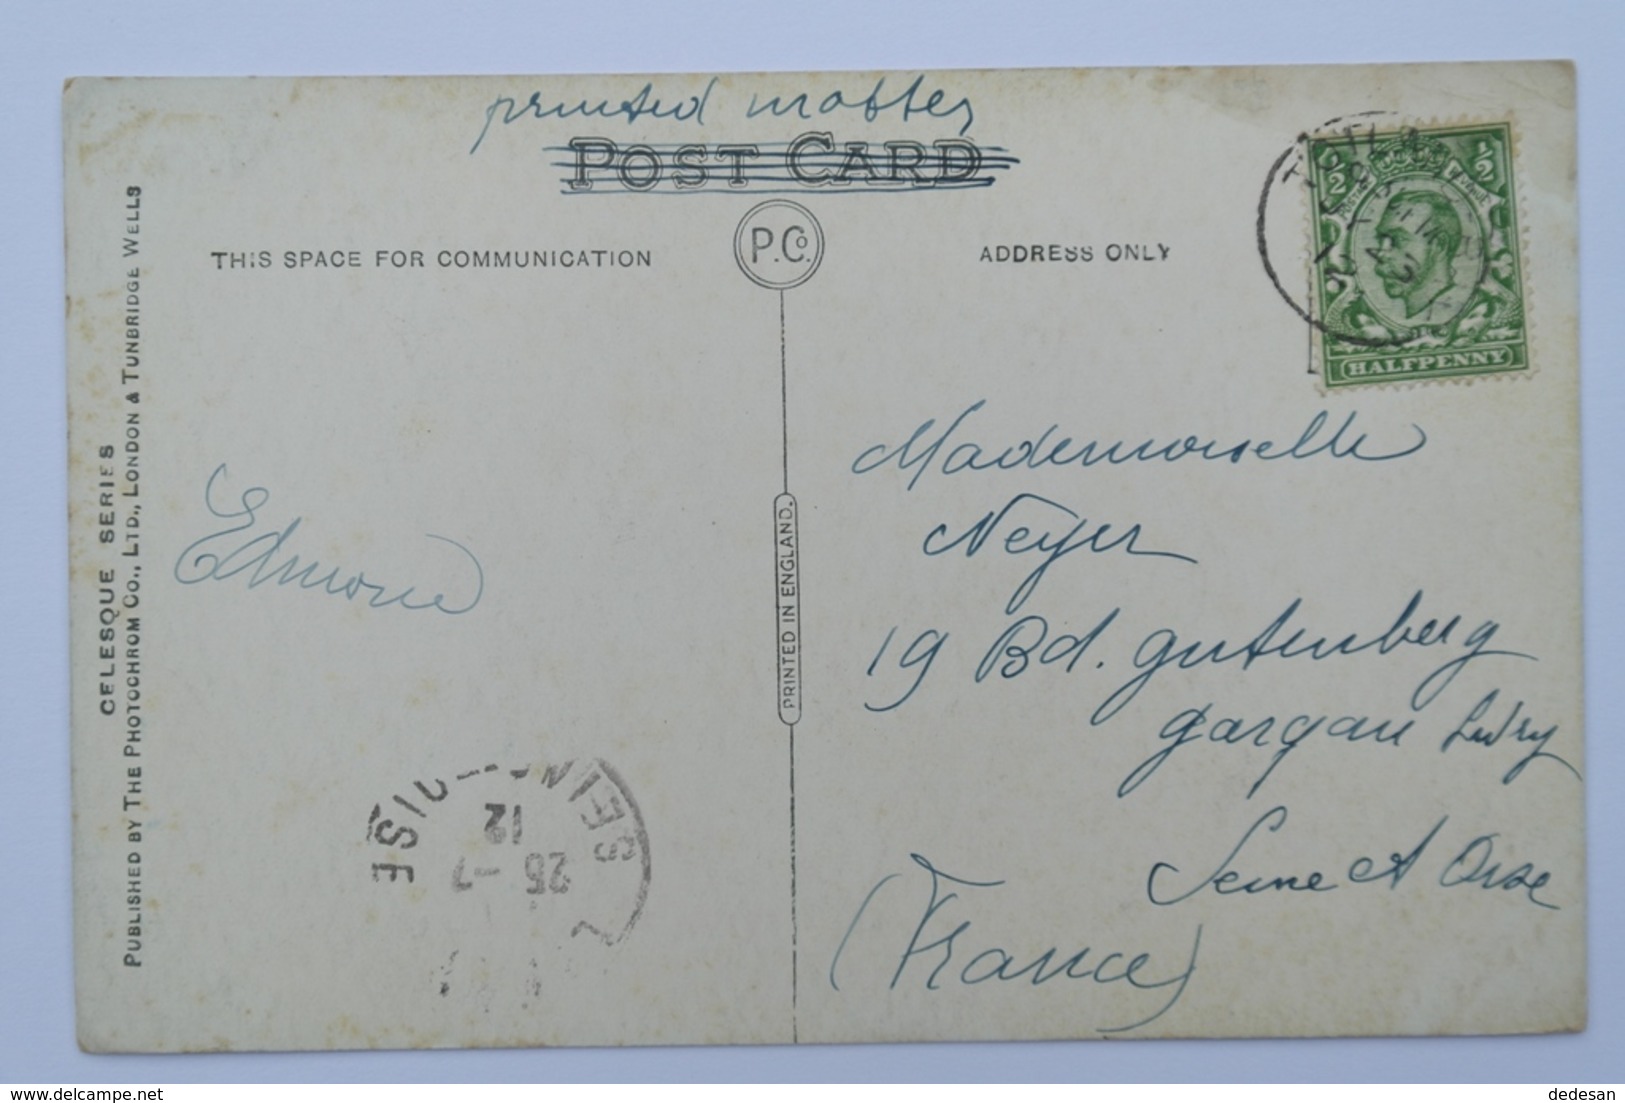 printed matter
POST CARD
THIS SPACE FOR COMMUNICATION
P.Co.
ADDRESS ONLY
HALFPENNY
Mademoiselle
Neyer
19 Bd. Gutenberg
Gargan Livry
Seine et Oise
(France)
Edmond
PRINTED IN ENGLAND.
CELESQUE SERIES
PUBLISHED BY THE PHOTOCHROM CO., LTD., LONDON & TUNBRIDGE WELLS
OISE
25 -7
12
delcampe.net
dedesan